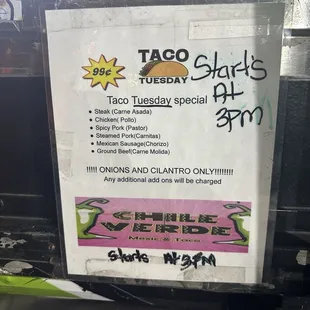 99¢
TACO
TUESDAY
Start's
At
3pm
Taco Tuesday special
Steak (Carne Asada)
Chicken( Pollo)
Spicy Pork (Pastor)
Steamed Pork(Carnitas)
Mexican Sausage(Chorizo)
Ground Beef(Carne Molida)
!!!!! ONIONS AND CILANTRO ONLY!!!!!!!!
Any additional add ons will be charged
CHILE
VERDE
Mexic & Taco
Starts At 3PM